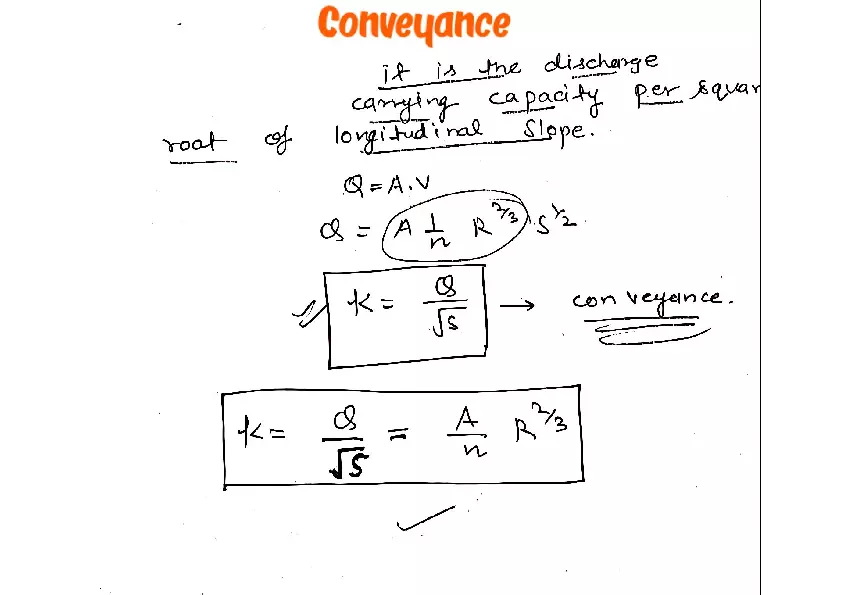 Conveyance
it is the discharge
carrying capacity per squar
root of longitudinal slope.
Q = A.V
Q = A 1/n R^2/3 . S^1/2.
K = Q/√S → conveyance.
K = Q/√S = A/n R^2/3